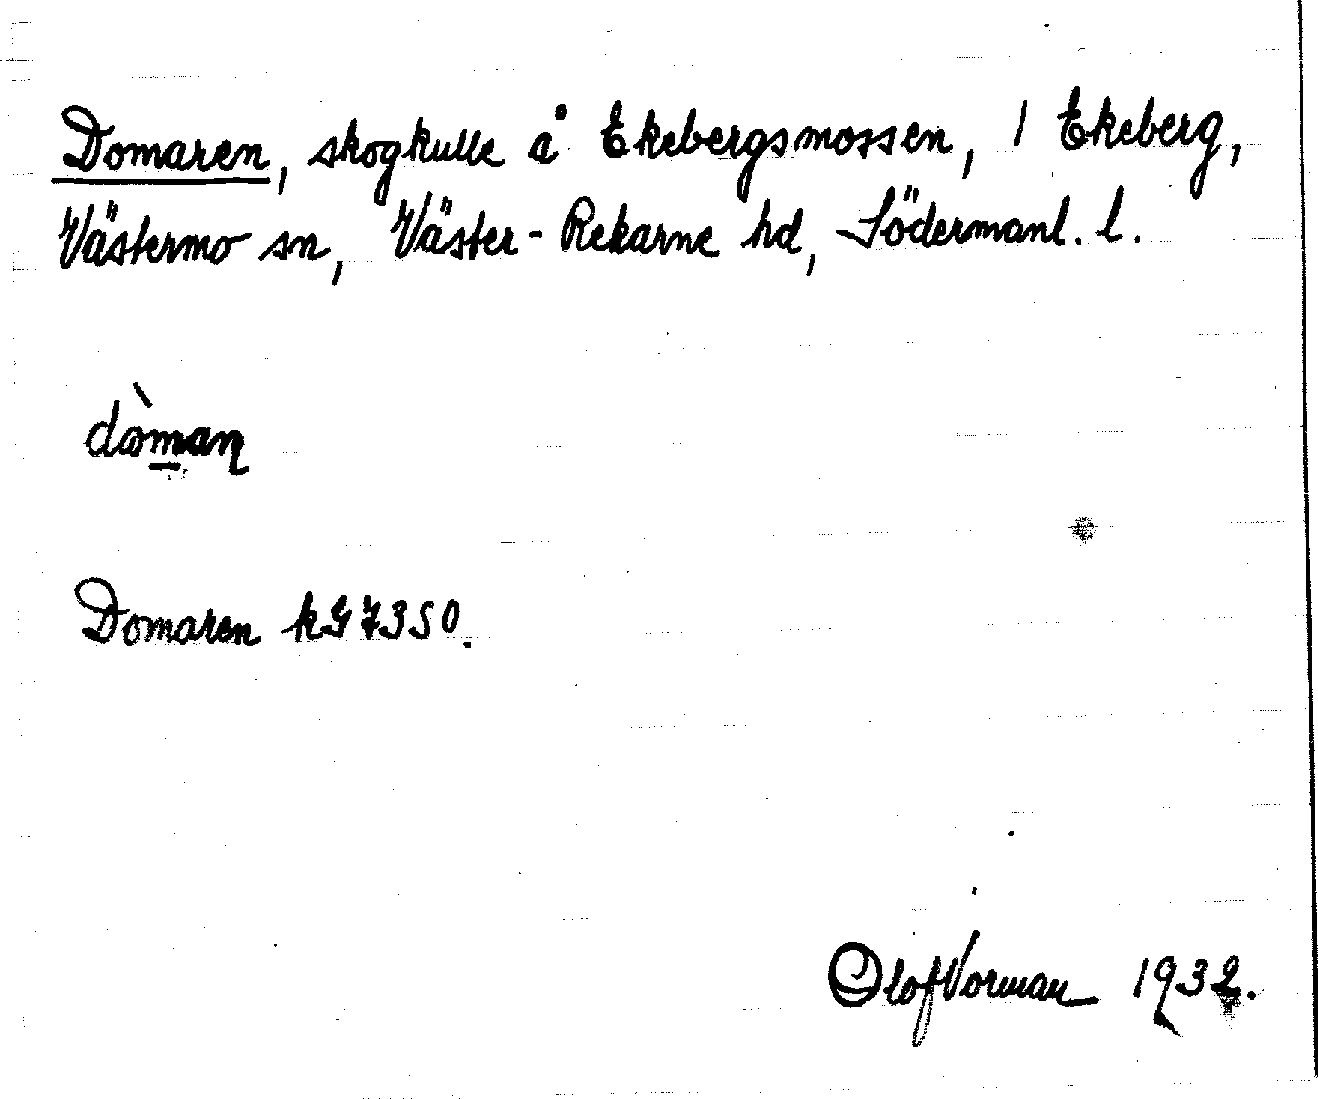 Domaren, skogkulle å Ekebergsmossen, 1 Ekeberg,
Västermo sn, Väster-Rekarne hd, Södermanl. l.
dòman
Domaren kG 7350.
Olof Vorman 1932.